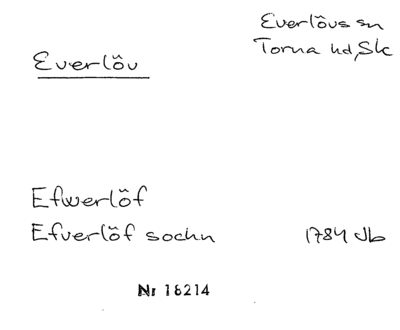 Everlöv
Everlövs sn
Torna hd, Sk
Efwerlöf
Efverlöf sochn 1784 Jb
Nr 16214